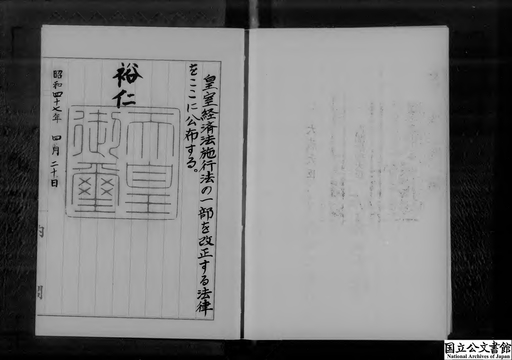 皇室経済法施行法の一部を改正する法律
をここに公布する。
裕仁
天皇
御璽
昭和四十七年 四月 二十日
国立公文書館
National Archives of Japan